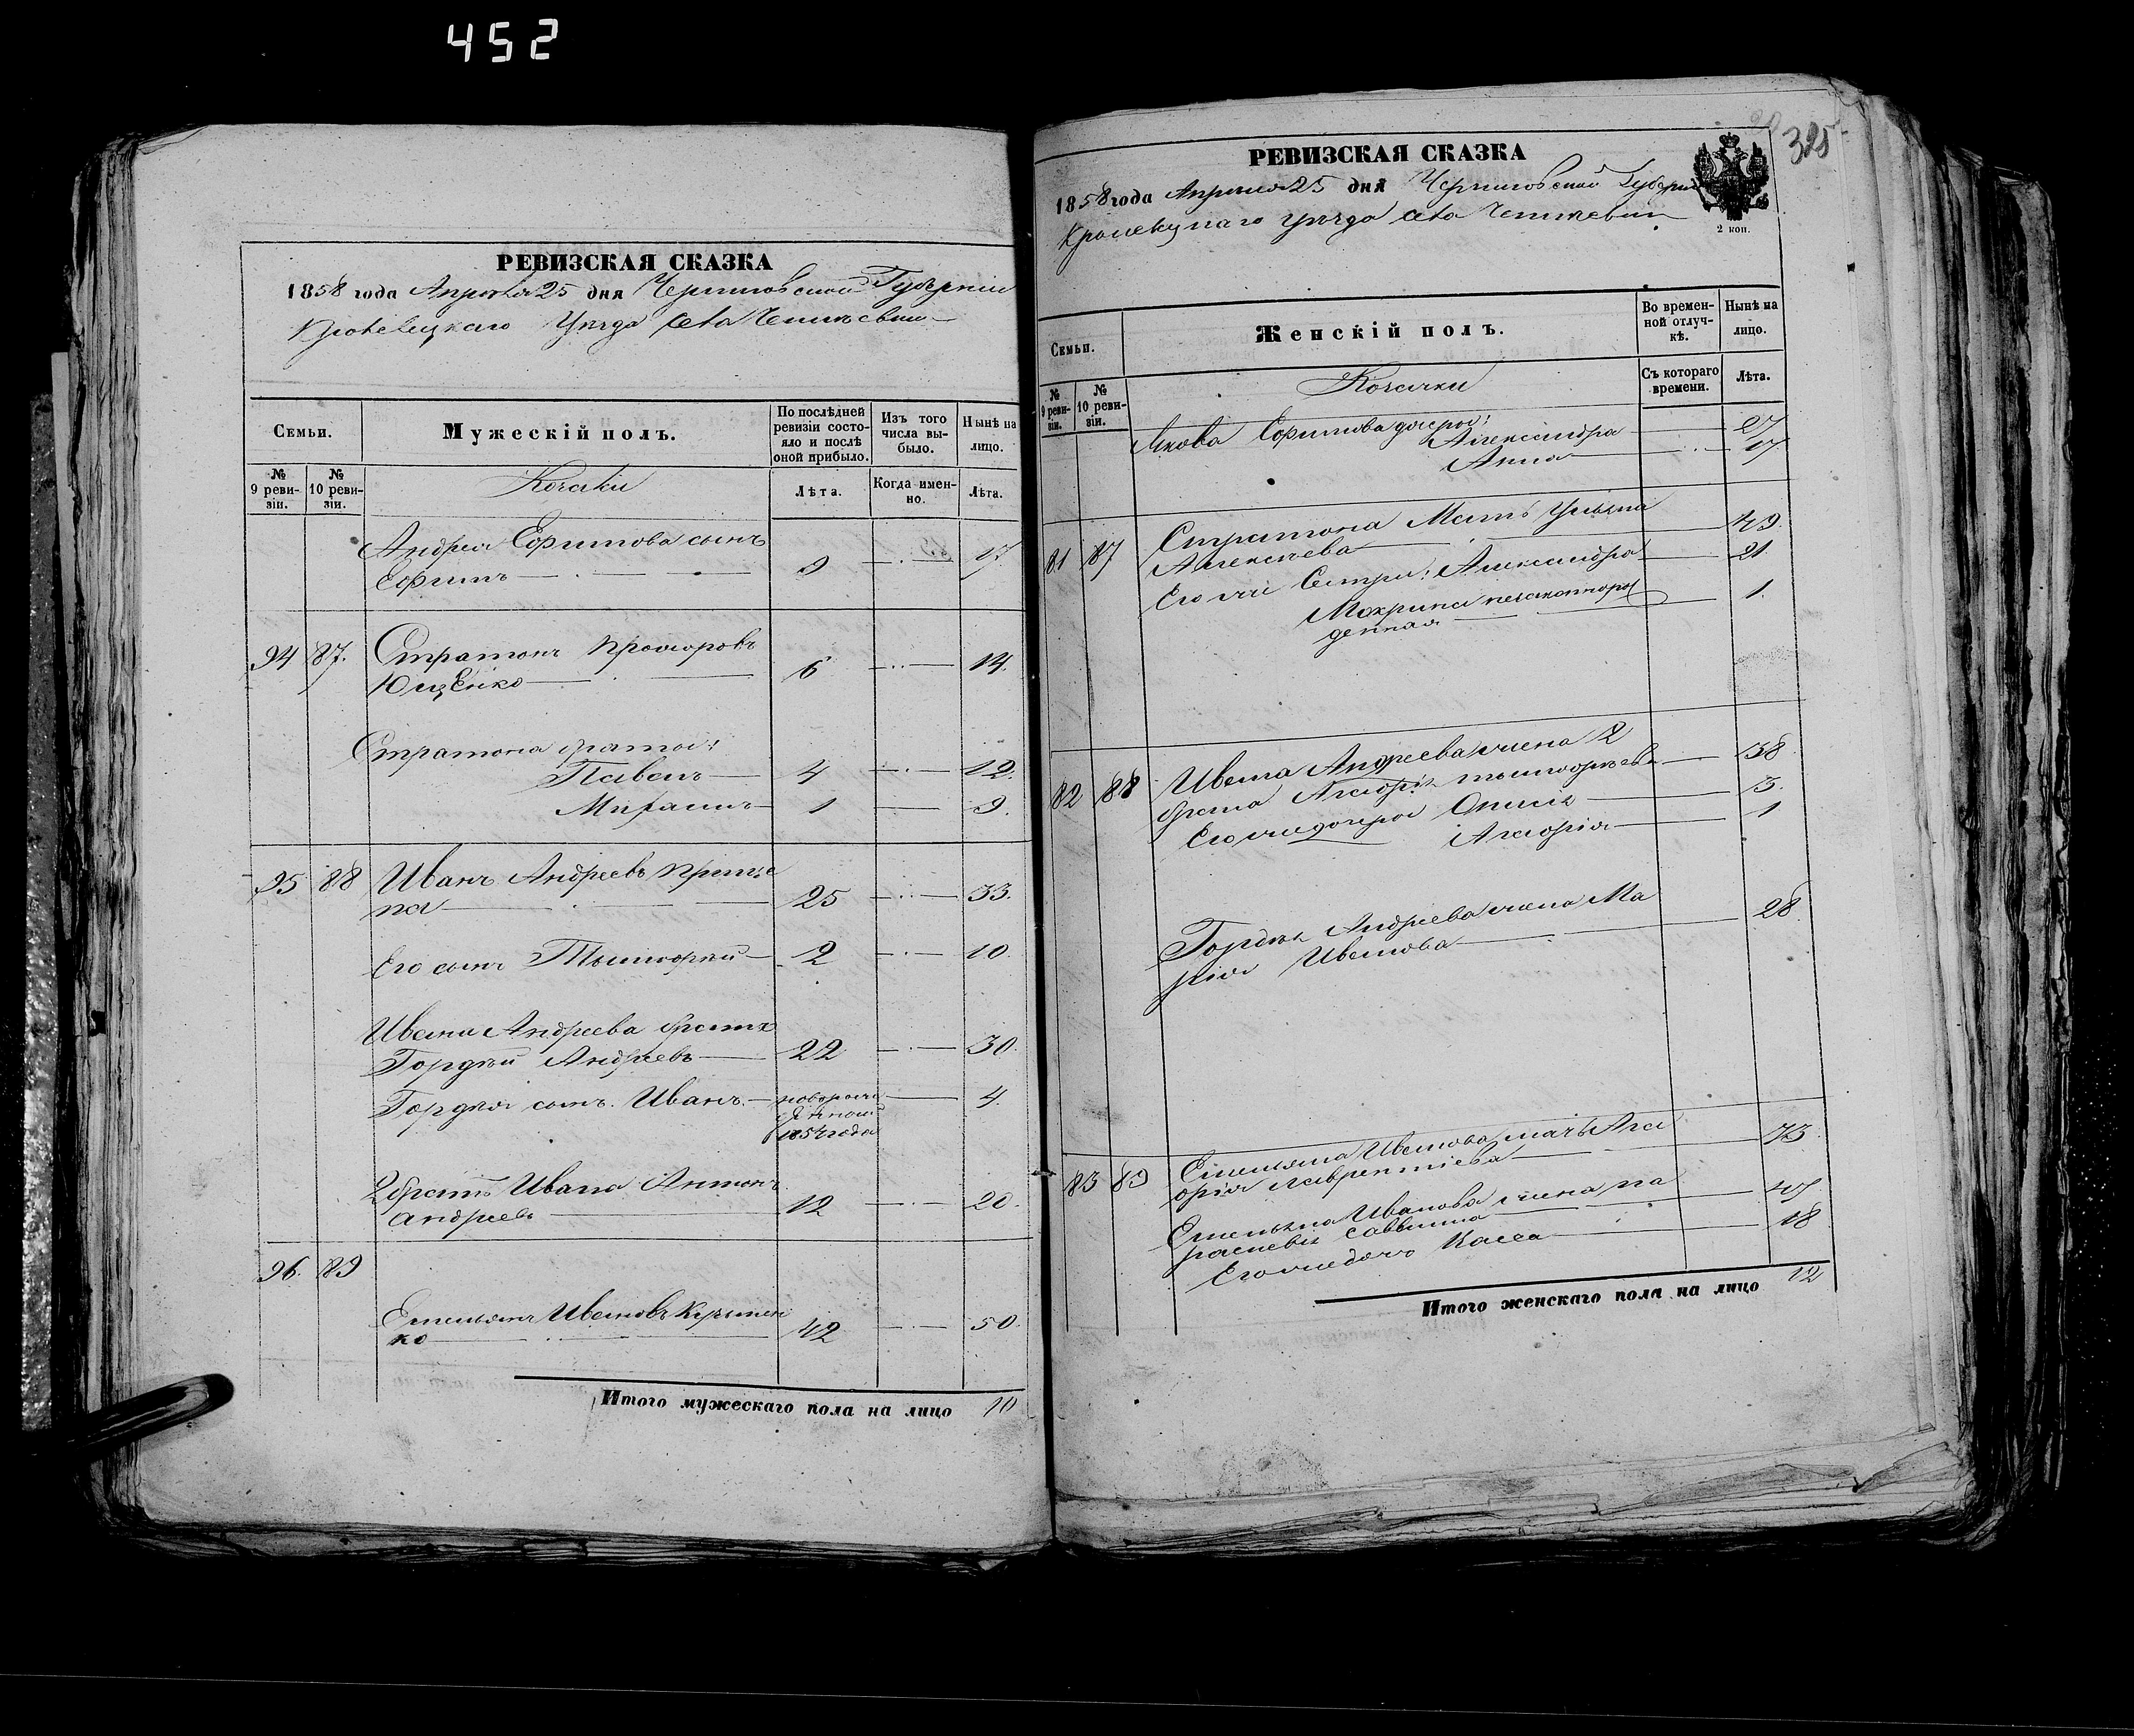 452
РЕВИЗСКАЯ СКАЗКА
1858 года Апреля 25 дня Черниговской Губерніи
Кролевецкаго Уезда села
Семьи.
Мужескій полъ.
По последней ревизіи состояло и после оной прибыло.
Изъ того числа выбыло.
Ныне на лицо.
№ 9 ревизіи.
№ 10 ревизіи.
Козаки
Лета.
Когда именно.
Лета.
Андрея Ефимова сынъ
Ефимъ 9 17
94 87. Стратонъ Прохоровъ
Ющенко 6 14.
Стратона братья:
Павелъ 4 12.
1 9.
95 88 Иванъ Андреевъ
25 33.
Его сынъ 2 10.
Ивана Андреева братъ
Гордей Андреевъ 22 30.
Гордея сынъ Иванъ 4.
1854 года
2 братъ Ивана Антонъ
Андреевъ 12 20.
96. 89
Емельянъ Ивановъ
ко 42 50.
Итого мужескаго пола на лицо 10
325
РЕВИЗСКАЯ СКАЗКА
1858 года Апреля 25 дня Черниговской Губерніи
уезда села
2 коп.
Семьи.
Женскій полъ.
Во временной отлучке.
Ныне на лицо.
№ 9 ревизіи.
№ 10 ревизіи.
Козачки
Съ котораго времени.
Лета.
Якова Ефимова дочери:
Александра
Анна 17.
81 87 Стратона Мать Ульяна
Алексеева 49.
Его же Сестры: Александра 21.
Макрина незаконнорож
денная 1.
82 88 Ивана Андреева жена 2
38.
Его же дочери 3.
1
Гордея Андреева жена Ма
рія Иванова 28.
83 89 Емельяна Иванова мать Ага
фія Лаврентіева 73.
Емельяна Иванова жена Па
раскевія Саввина 47
Его же дочь 18
Итого женскаго пола на лицо 12